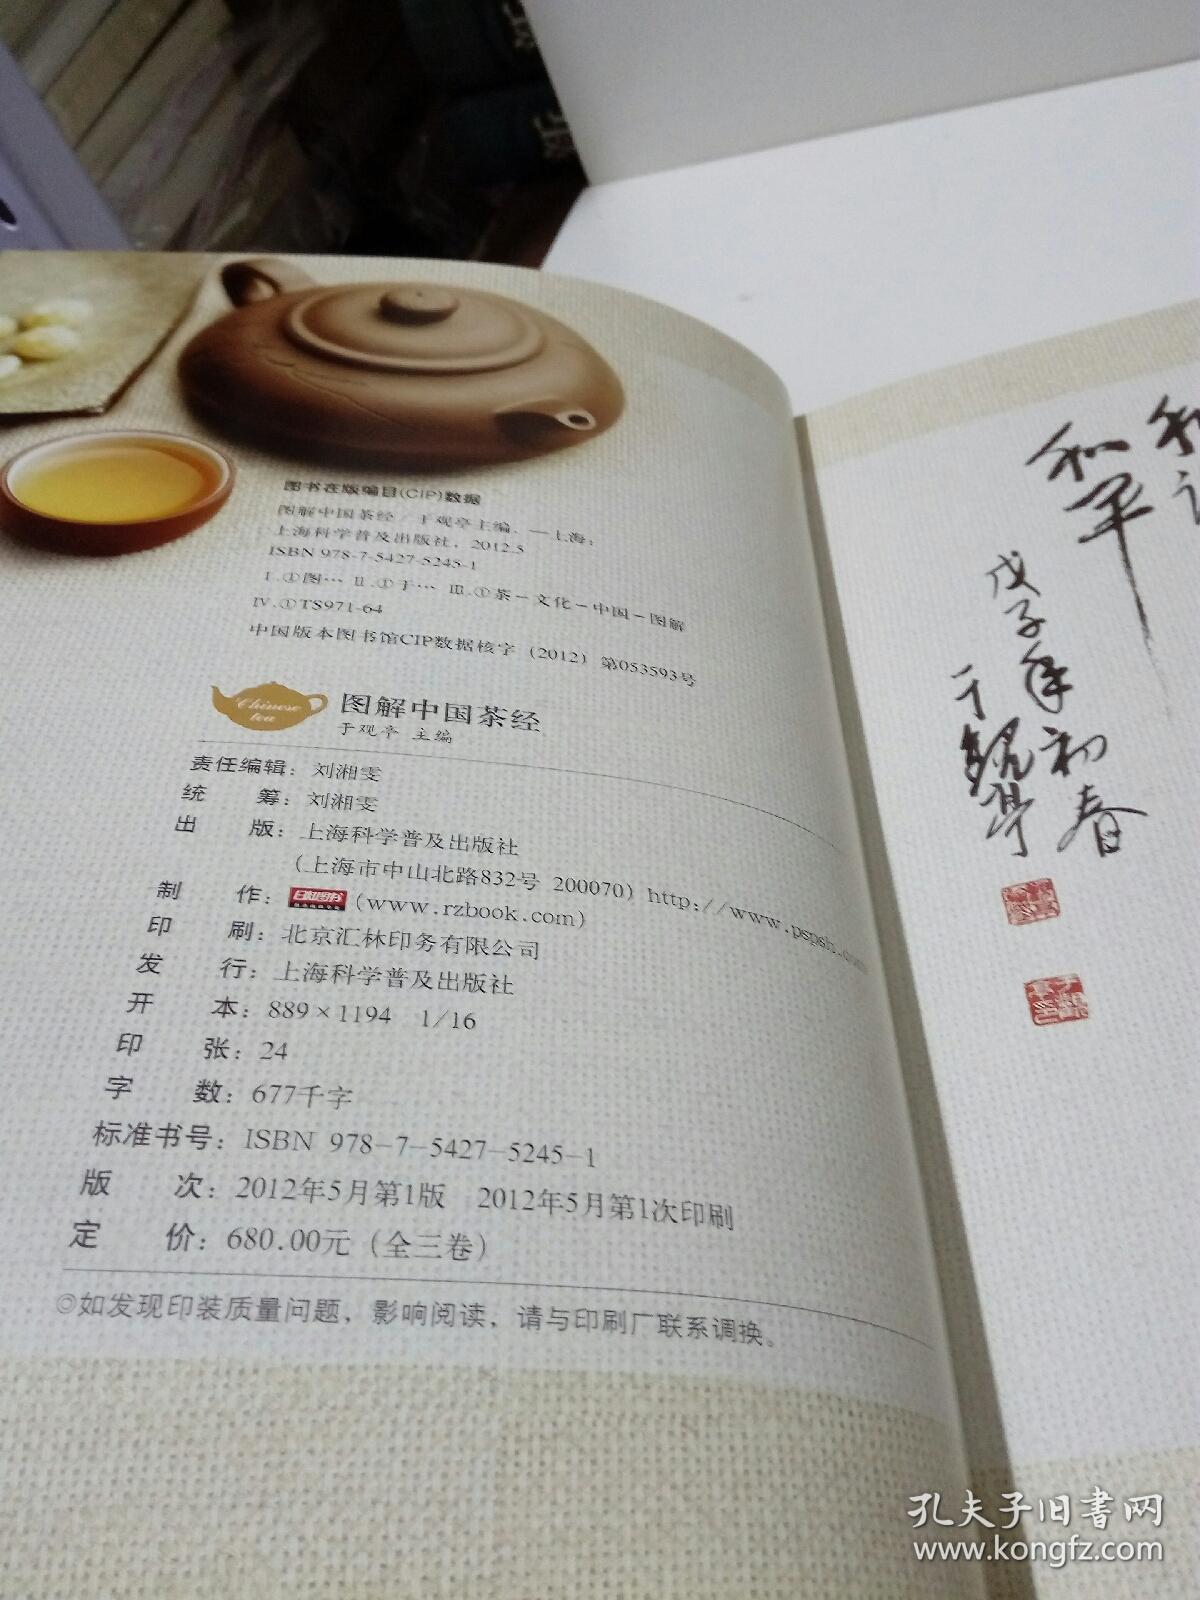 图书在版编目(CIP)数据
图解中国茶经／于观亭主编．—上海：
上海科学普及出版社，2012.5
ISBN 978-7-5427-5245-1
Ⅰ.①图… Ⅱ.①于… Ⅲ.①茶－文化－中国－图解
Ⅳ.①TS971-64
中国版本图书馆CIP数据核字（2012）第053593号
Chinese tea
图解中国茶经
于观亭 主编
责任编辑：刘湘雯
统 筹：刘湘雯
出 版：上海科学普及出版社
（上海市中山北路832号 200070）http://www.pspsh.com
制 作：日知图书 (www.rzbook.com)
印 刷：北京汇林印务有限公司
发 行：上海科学普及出版社
开 本：889×1194 1/16
印 张：24
字 数：677千字
标准书号：ISBN 978-7-5427-5245-1
版 次：2012年5月第1版 2012年5月第1次印刷
定 价：680.00元（全三卷）
◎如发现印装质量问题，影响阅读，请与印刷厂联系调换。
和平
戊子年初春
于观亭
孔夫子旧书网
www.kongfz.com